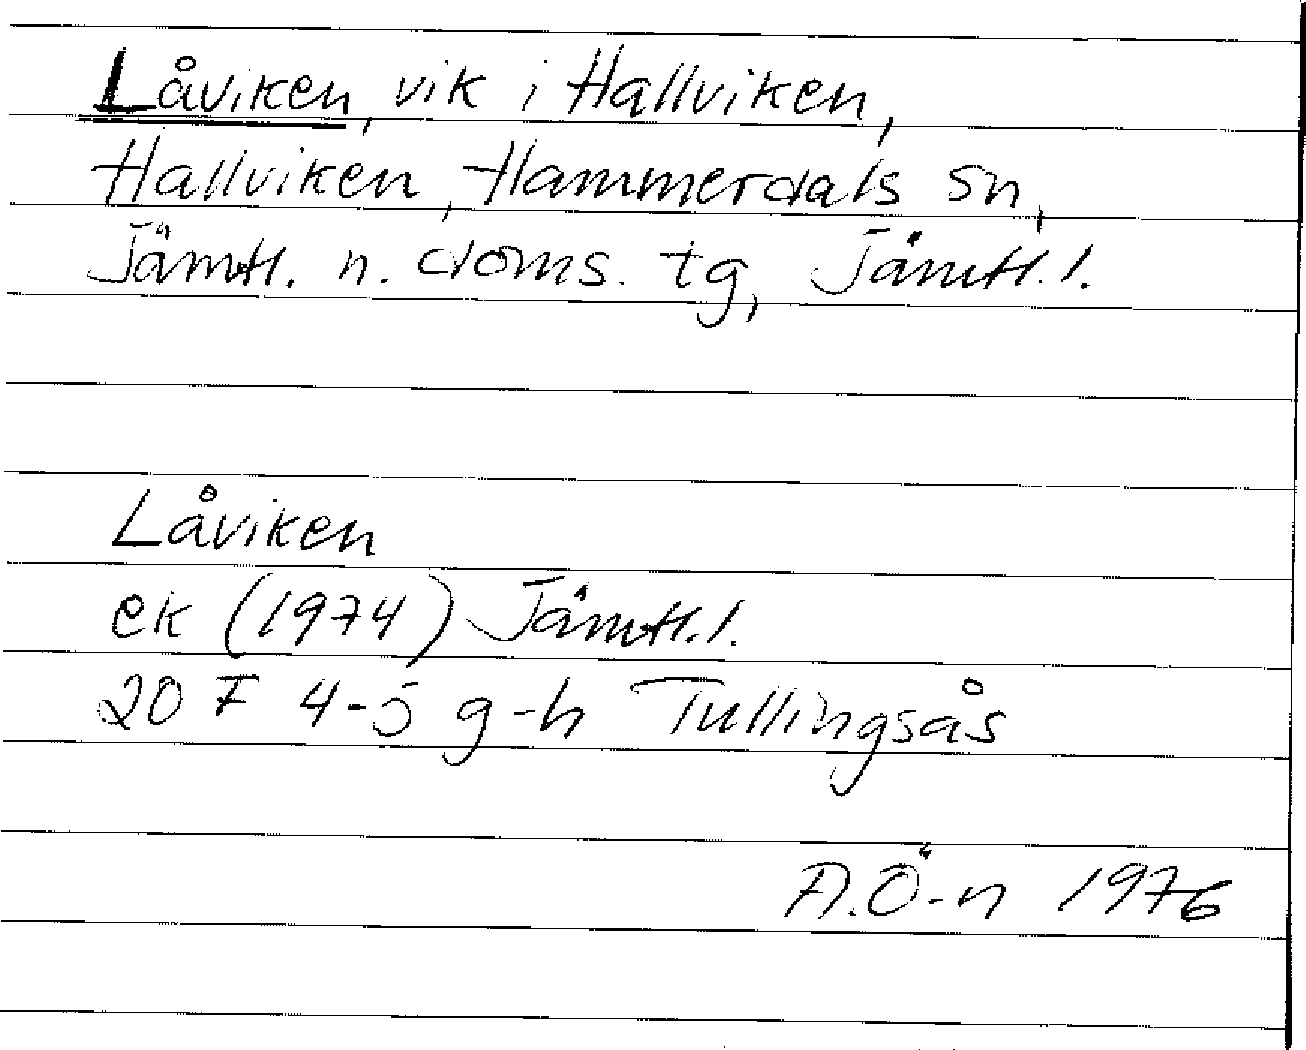 Låviken, vik i Hallviken,
Hallviken, Hammerdals sn,
Jämtl. n. doms. tg, Jämtl. l.
Låviken
ek (1974) Jämtl. l.
20 F 4-5 g-h Tullingsås
A.Ö-n 1976